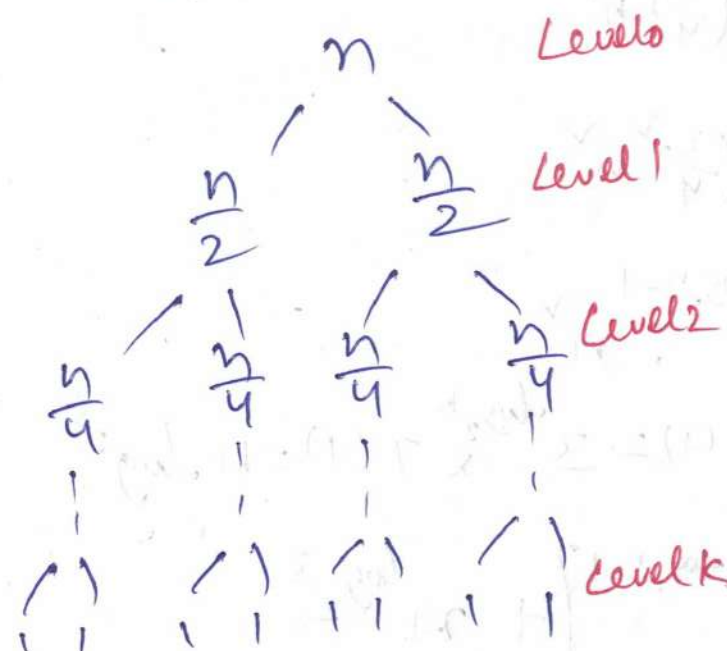 n Level0
n/2 n/2 Level 1
n/4 n/4 n/4 n/4 Level2
1 1 1 1 1 1 1 1 Level k